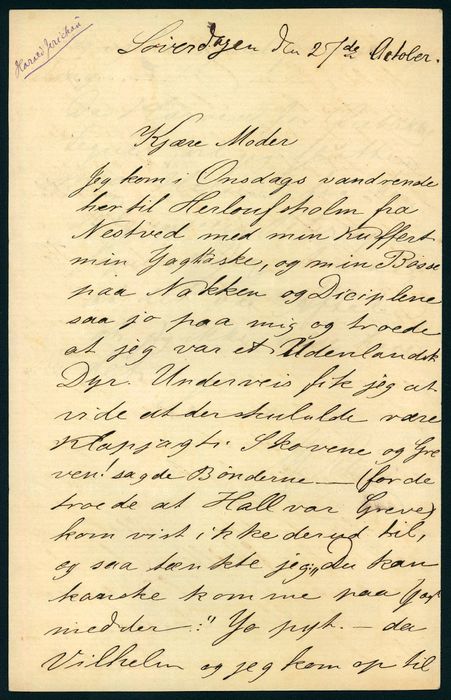 Harald Jerichau
Löverdagen den 27de October.
Kjære Moder
Jeg kom i Onsdags vandrende
her til Herloufsholm fra
Nestved med min Kuffert
min Jagttaske, og min Bösse
paa Nakken og Diciplene
saa jo paa mig og troede
at jeg var et Udenlandsk
Dyr. Underveis fik jeg at
vide at der skulde være
Klapjagt i Skovene og Gre
ven! sagde Bönderne — (for de
troede at Hall var Greve)
kom vist ikke derud til,
og saa tænkte jeg: "Du kan
kanske komme paa Jagt
med der:" Jo pyt. — da
Vilhelm og jeg kom op til